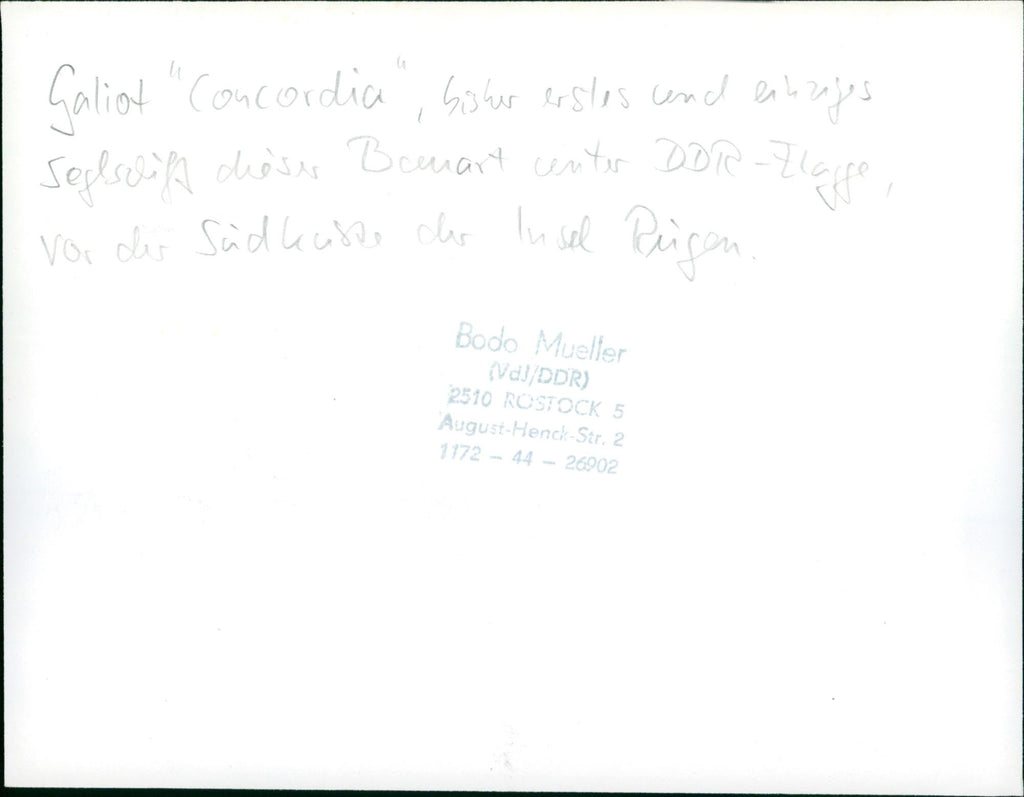 Galiot "Concordia", bisher erstes und einziges
Seglschiff dieser Bauart unter DDR-Flagge,
vor der Südküste der Insel Rügen.
Bodo Mueller
(VdJ/DDR)
2510 ROSTOCK 5
August-Henck-Str. 2
1172 - 44 - 26902